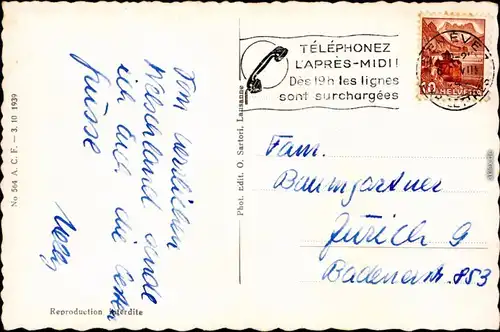 No 564 A. C. F. - 3. 10 1939
Vom herrlichen
Welschland sende
ich Euch die besten
Grüsse
Reproduction interdite
Phot. edit. O. Sartori, Lausanne
TÉLÉPHONEZ
L'APRÈS-MIDI!
Dès 19h les lignes
sont surchargées
GENÈVE 1
10
HELVETIA
Fam.
Baumgartner
Zürich 9
Badenerstr. 853